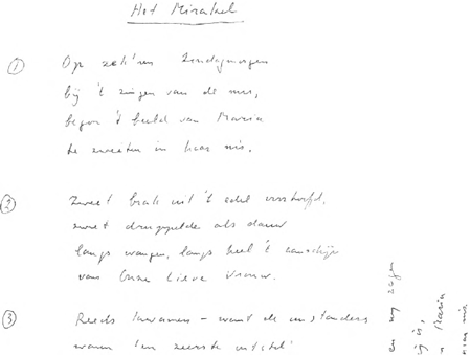 Het Mirakel
① Op zek're Zondagmorgen
bij 't zingen van de mis,
begon 't beeld van Maria
te zweeten in haar nis.
② Zweet brak uit 't edel voorhoofd,
zweet druppelde als dauw
langs wangen, langs heel 't aanschijn
van Onze Lieve Vrouw.
③ Reeds kwamen – want de omstanders
waren ten zeerste
Maria
haar nis